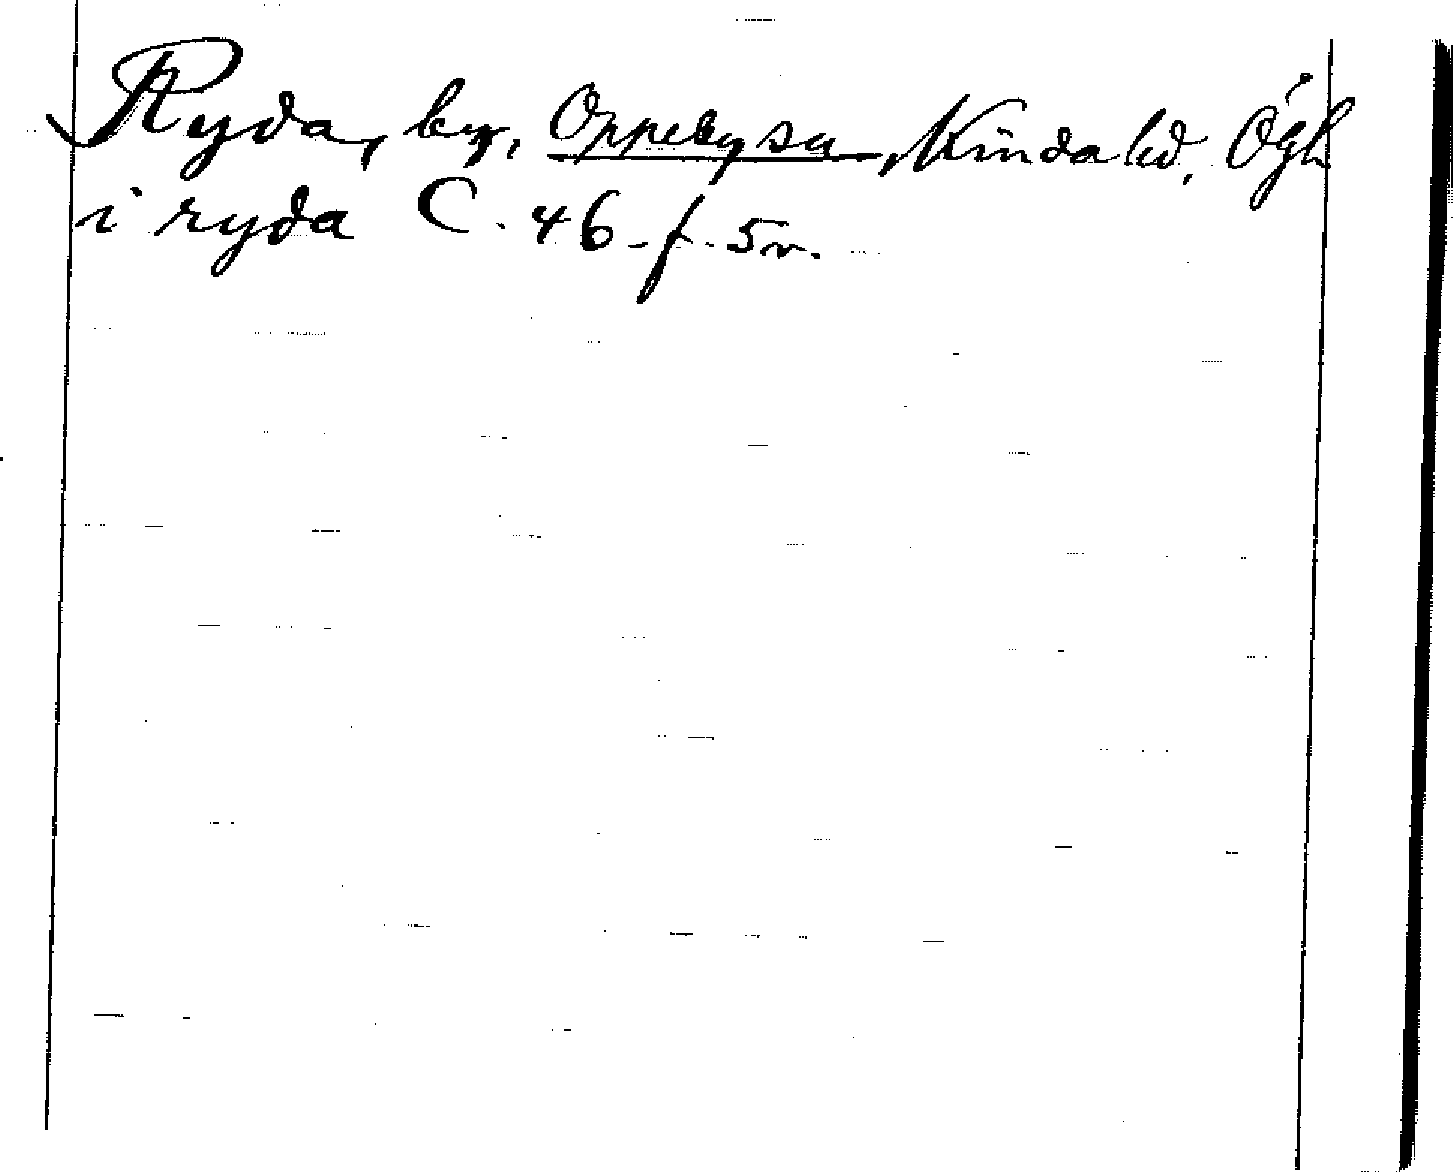 Ryda, by, Oppeby sn, Kinda hd, Ögl
i ryda C. 46 f. 5 v.